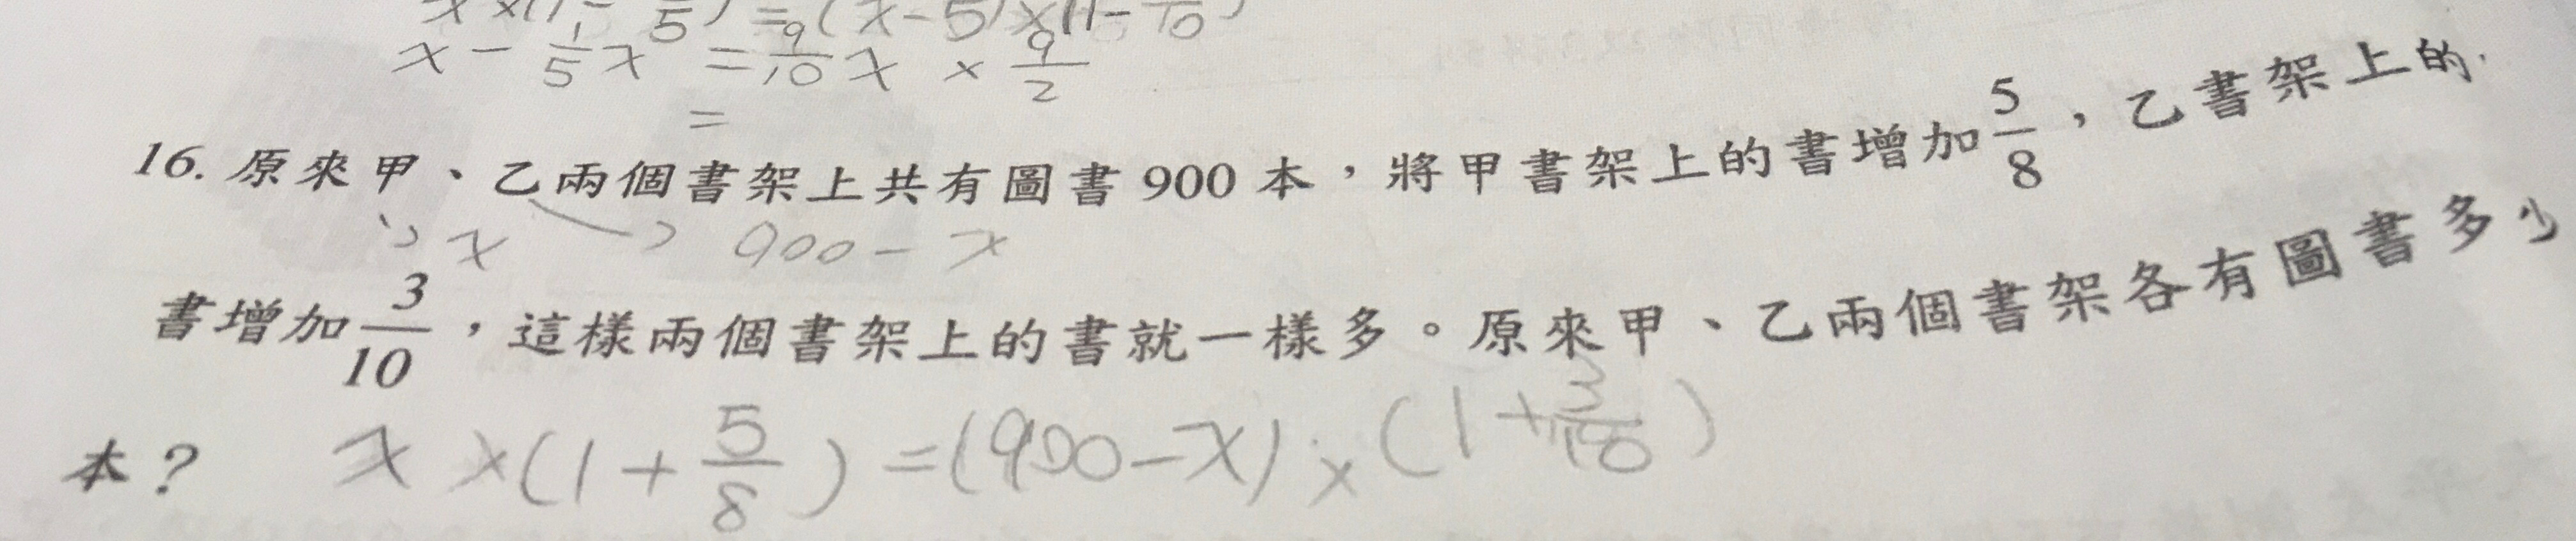 x - 1/5 x = 9/10 x × 9/2
=
16. 原來甲、乙兩個書架上共有圖書 900 本，將甲書架上的書增加5/8，乙書架上的
x 900 - x
書增加3/10，這樣兩個書架上的書就一樣多。原來甲、乙兩個書架各有圖書多少
本？ x × (1 + 5/8) = (900 - x) × (1 + 3/10)